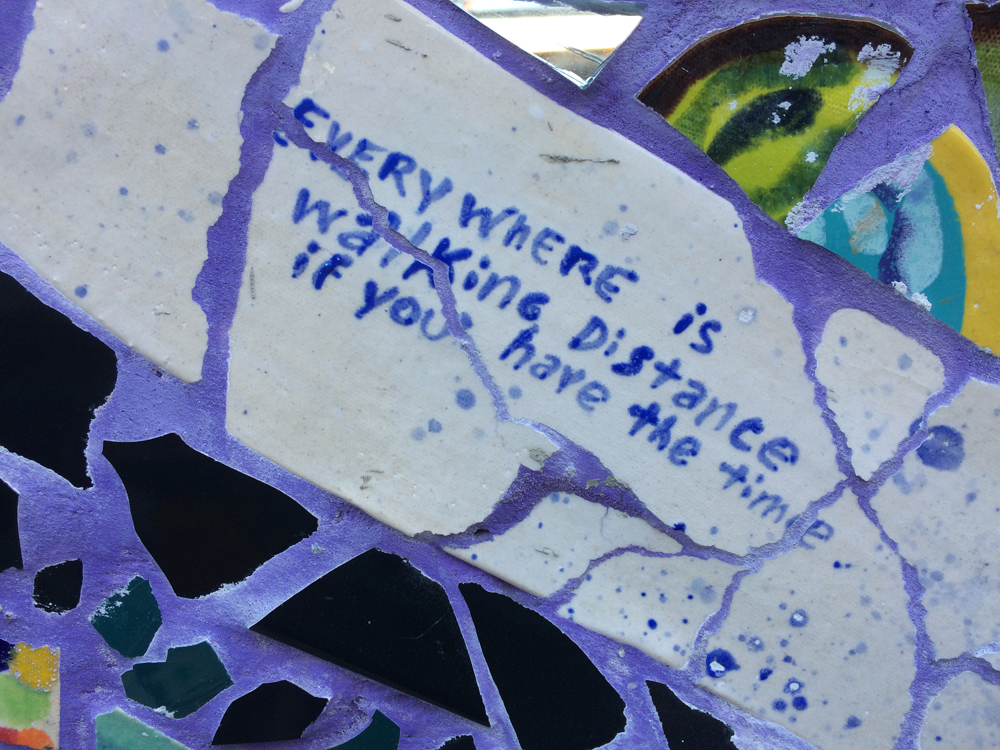 EVERYWHERE is
Walking Distance
if you have the time